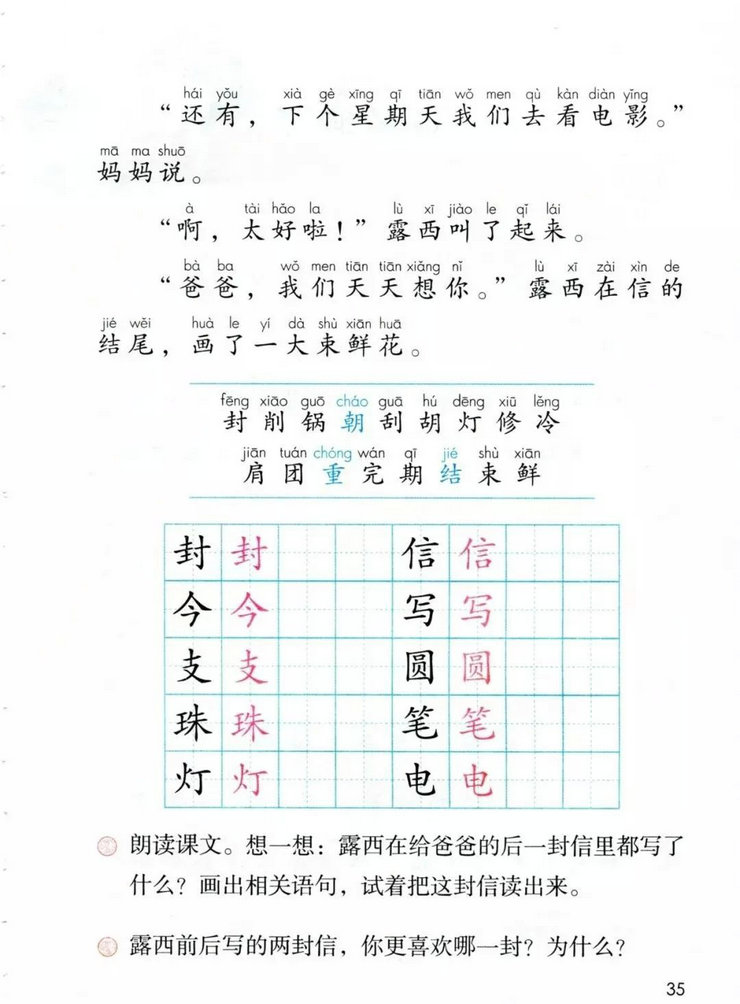 hái yǒu xià gè xīng qī tiān wǒ men qù kàn diàn yǐng
“还有，下个星期天我们去看电影。”
mā ma shuō
妈妈说。
à tài hǎo la lù xī jiào le qǐ lái
“啊，太好啦！”露西叫了起来。
bà ba wǒ men tiān tiān xiǎng nǐ lù xī zài xìn de
“爸爸，我们天天想你。”露西在信的
jié wěi huà le yí dà shù xiān huā
结尾，画了一大束鲜花。
fēng xiāo guō cháo guā hú dēng xiū lěng
封削锅朝刮胡灯修冷
jiān tuán chóng wán qī jié shù xiān
肩团重完期结束鲜
封 封 信 信
今 今 写 写
支 支 圆 圆
珠 珠 笔 笔
灯 灯 电 电
朗读课文。想一想：露西在给爸爸的后一封信里都写了
什么？画出相关语句，试着把这封信读出来。
露西前后写的两封信，你更喜欢哪一封？为什么？
35